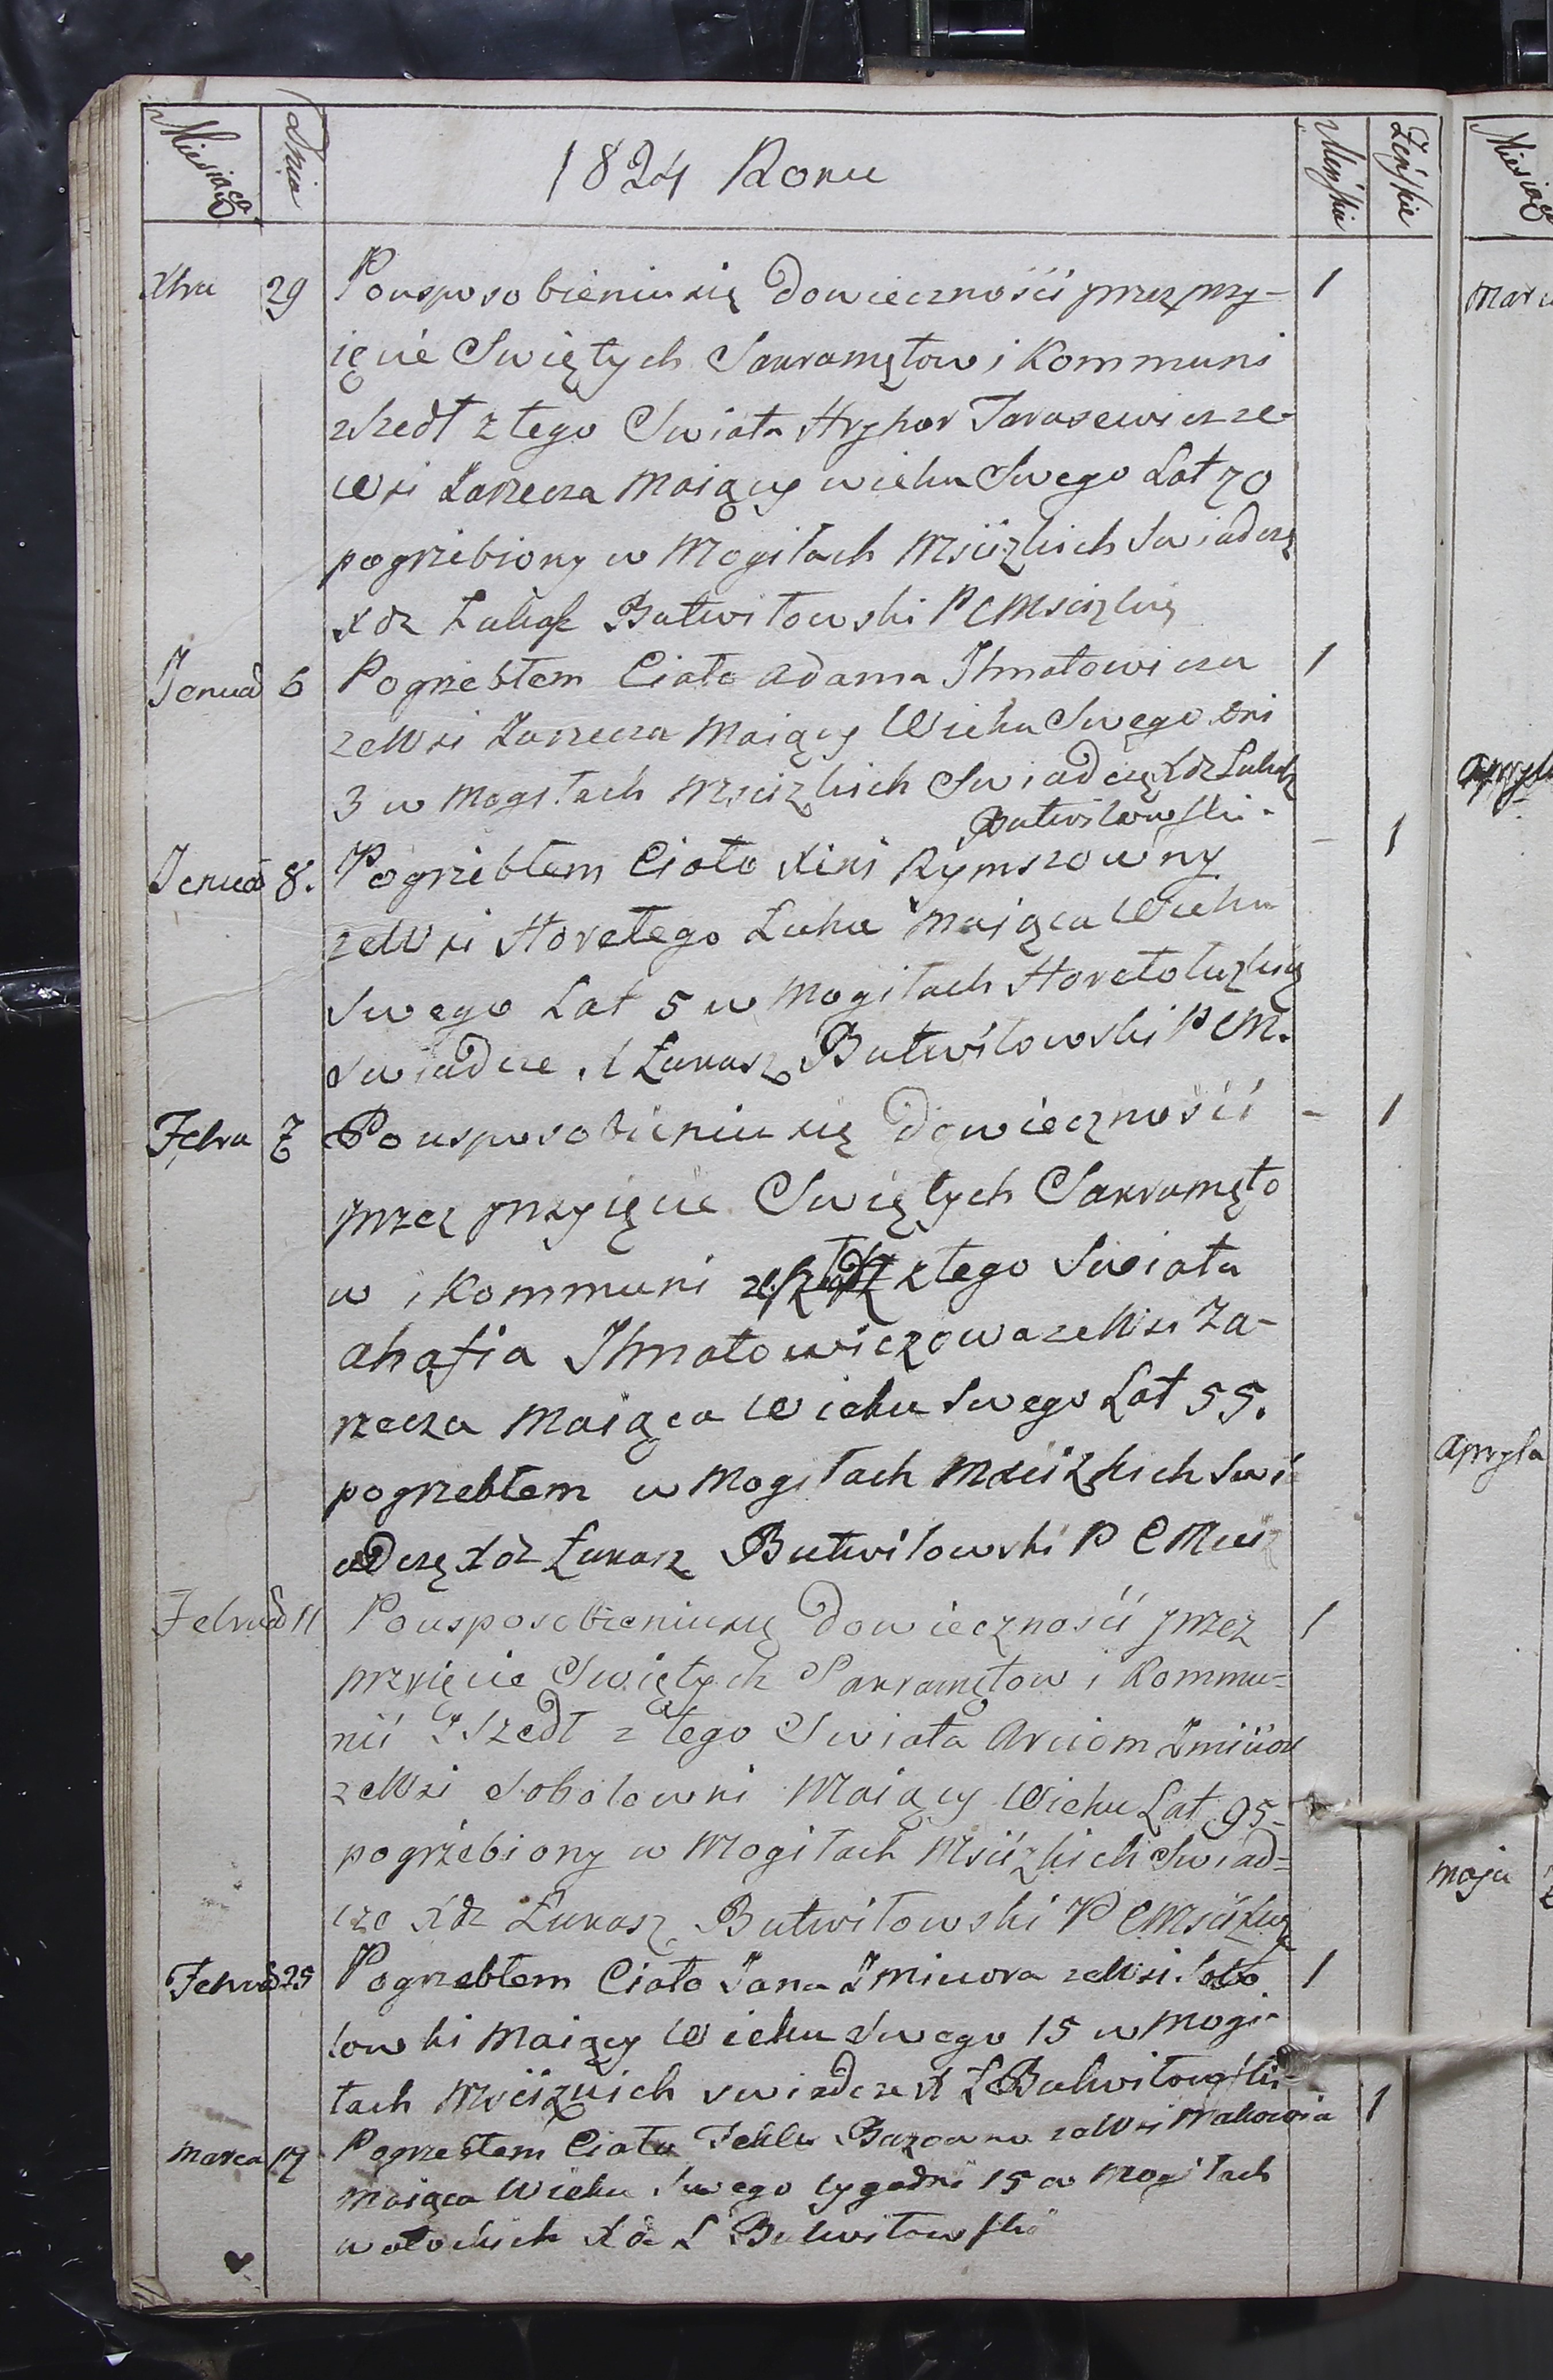 Miesiąca Dnia 1824 Roku Męskie Żeńskie
Xbra 29 Pousposobieniusię dowiecznośći przez przy- 1
ięcie Swiętych Sakramętow i Kommuni
zszedł z tego Swiata Hryhor Tarasewicz ze
wsi Zarzecza maiący wieku Swego Lat 70
pogrzebiony w Mogiłach Mśćizkich Swiadczę
xdz Łukasz Butwiłowski P C Mscizki
Jenua 6 Pogrzebłem Ciało adama Ihnatowicza 1
zeWsi Zarzecza maiący Wieku Swego dni
3 w mogiłach Mscizkich Swiadczę Xdz Łukasz
Butwiłowski -
Jenua 8. Pogrzebłem Ciało Xini Rymszowny - 1
zeWsi Horełego Łuhu maiąca Wieku
Swego Lat 5 w Mogiłach Horełołuzkich
Swiadcze X Łukasz Butwiłowski P C M.
Febra 7 Pousposobieniu się dowiecznośći - 1
przez przyięcie Swiętych Sakramęto
w i Kommuni z tego Swiata
ahafia Ihnatowiczowa zeWsi Za-
rzecza maiąca Wieku Swego Lat 55.
pogrzebłem w Mogiłach Mśćizkich Swi
adczę xdz Łukasz Butwiłowski P C Mści
Februa 11 Pousposobieniusię dowiecznośći przez 1
przyięcie Swiętych Sakramętow i Kommu=
nii Zszedł z tego Swiata Arciom
zeWsi Sobolowki Maiący Wieku Lat 95-
pogrzebiony w Mogiłach Mśćizkich Swiad=
cze Xdz Łukasz Butwiłowski P C Mśćizki
Februa 25 Pogrzebłem Ciało Jana zeWsi Sobo 1
lowki maiący Wieku Swego 15 w mogi
łach Mśćizkich swiadcze X Ł Butwiłowski
Marca 17 Pogrzebłem Ciało Fekli zeWsi Makowia 1
maiąca Wieku Swego tygodni 15 w Mogiłach
wołockich Xdz Ł Butwiłowski
Miesiąca
Marca
apryla
apryla
maja